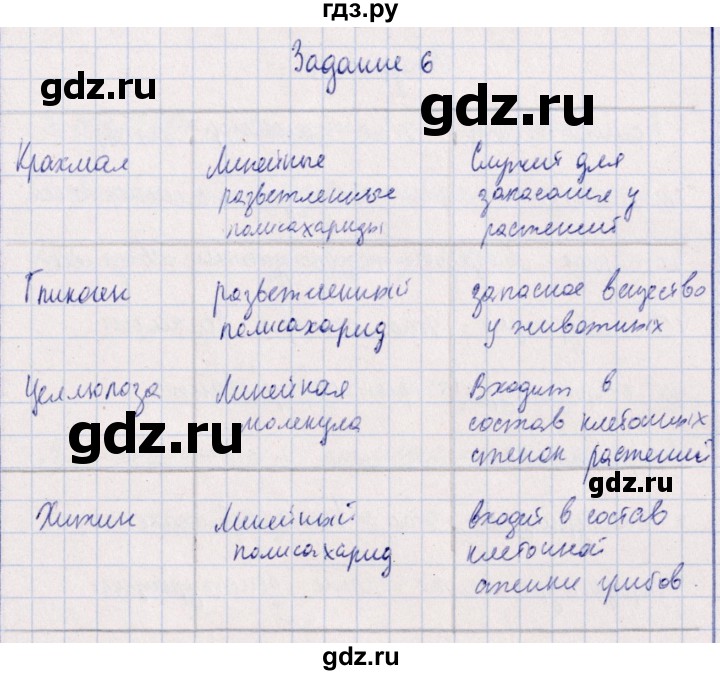 гдз.ру
Задание 6
gdz.ru
gdz.ru
Крахмал
Линейные
разветленные
полисахариды
Служит для
запасания у
растений
Гликоген
разветленный
полисахарид
запасное вещество
у животных
Целлюлоза
Линейная
молекула
Входит в
состав клеточных
стенок растений
gdz.ru
gdz.ru
Хитин
Линейный
полисахарид
входит в состав
клеточной
стенки грибов.
gdz.ru